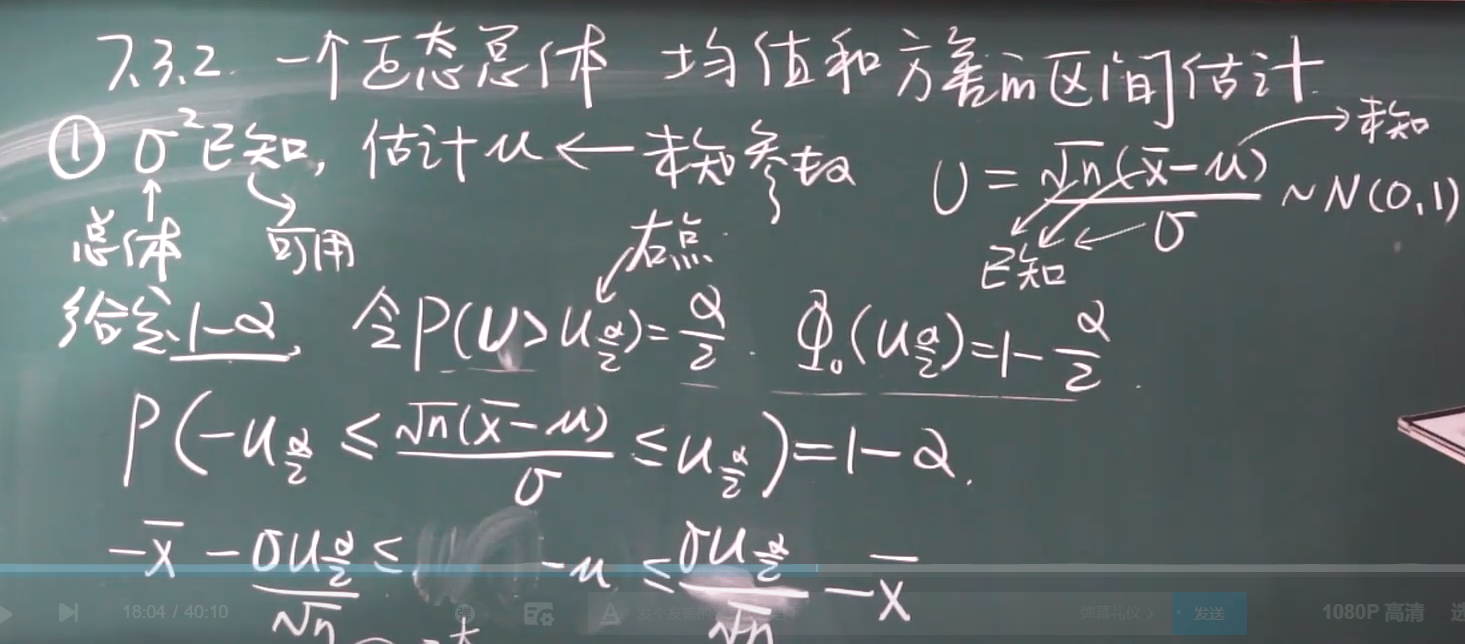 7.3.2. 一个正态总体 均值和方差的区间估计
① σ²已知, 估计 μ ← 未知参数
总体
可用
U = √n(x̄-μ)/σ ~ N(0,1)
未知
已知
右点
给定 1-α, 令 P(U > u_{α/2}) = α/2. Φ₀(u_{α/2}) = 1 - α/2.
P(-u_{α/2} ≤ √n(x̄-μ)/σ ≤ u_{α/2}) = 1-α.
-x̄ - σu_{α/2}/√n ≤ -μ ≤ σu_{α/2}/√n - x̄
18:04 / 40:10
弹幕礼仪 >
发送
1080P 高清